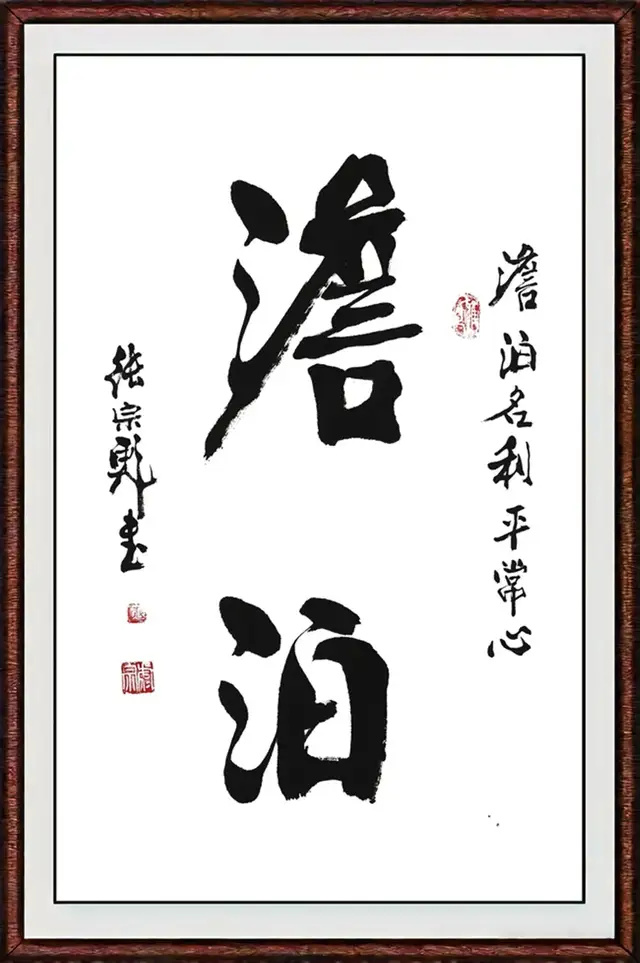 澹泊名利平常心
澹泊
张宗彪书